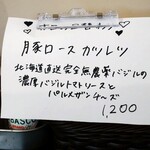 豚ロースカツレツ
北海道直送完全無農薬バジルの
濃厚バジルトマトソースと
パルメザンチーズ
1,200
BASCO